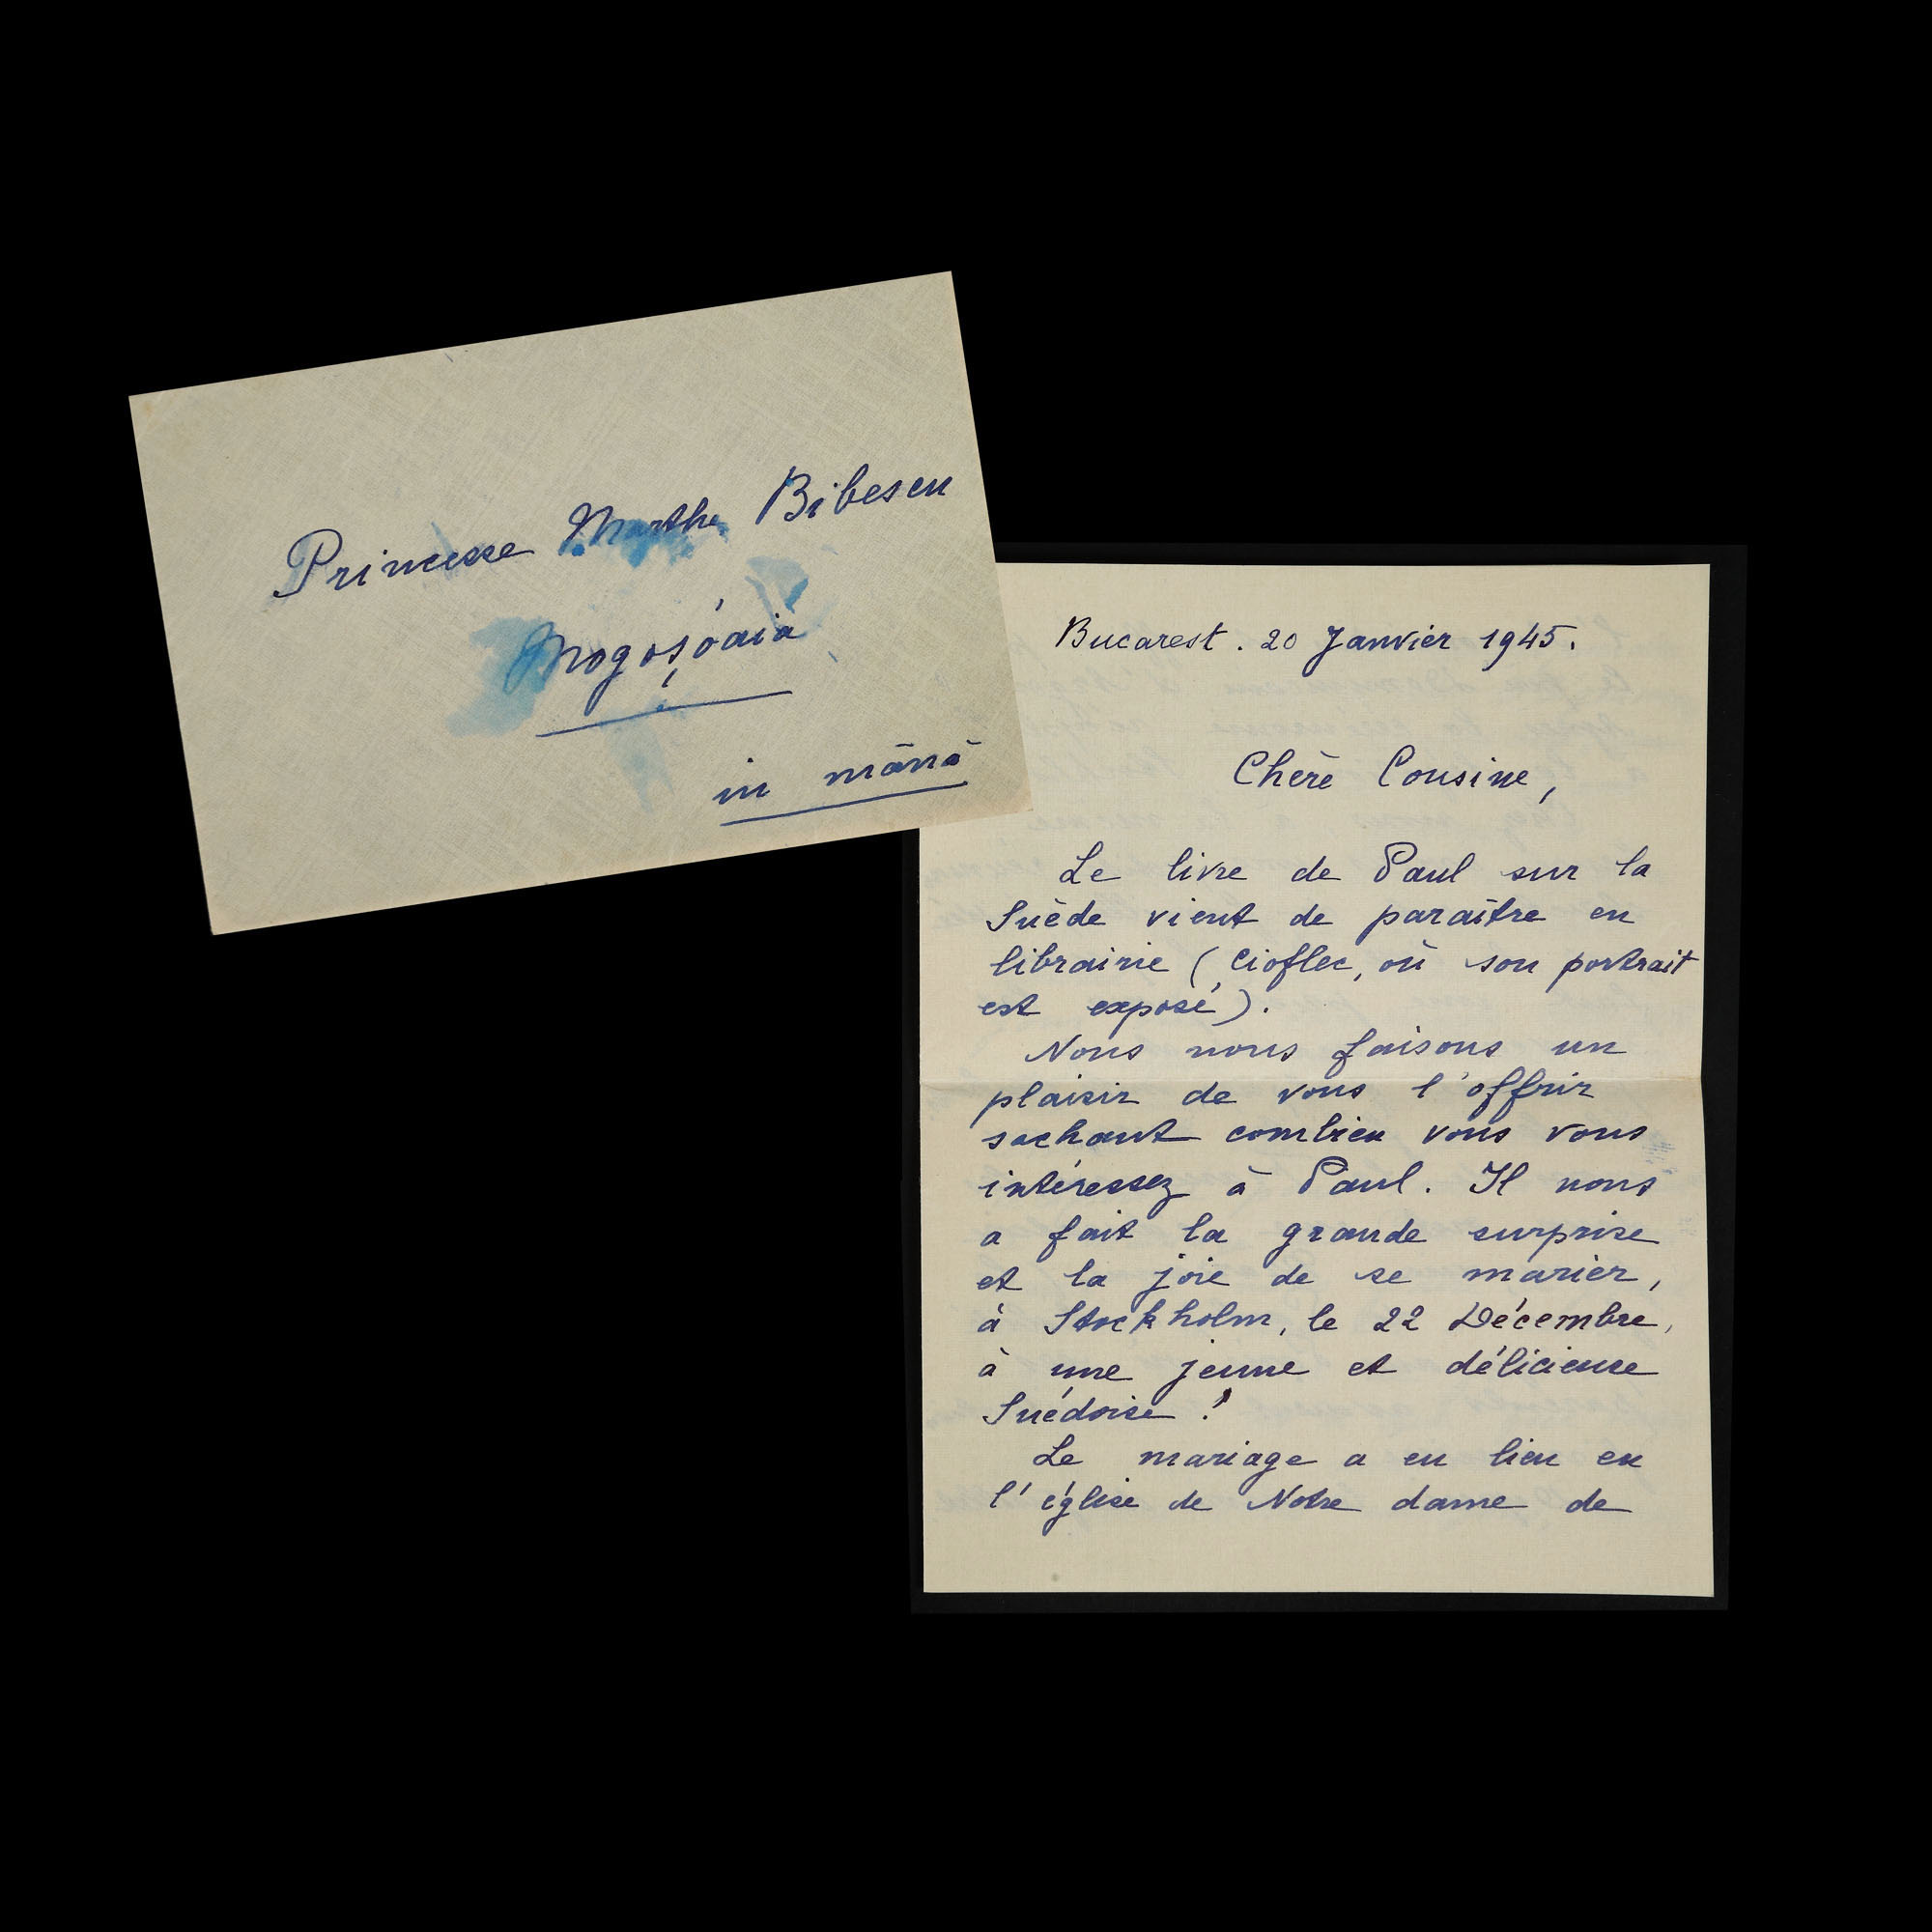 Princesse Marthe Bibescu
Mogoșóaia
in mână
Bucarest. 20 Janvier 1945.
Chère Cousine,
Le livre de Paul sur la
Suède vient de paraître en
librairie (Cioflec, où son portrait
est exposé).
Nous nous faisons un
plaisir de vous l'offrir
sachant combien vous vous
intéressez à Paul. Il nous
a fait la grande surprise
et la joie de se marier,
à Stockholm, le 22 Décembre,
à une jeune et délicieuse
Suédoise !
Le mariage a eu lieu en
l'église de Notre dame de